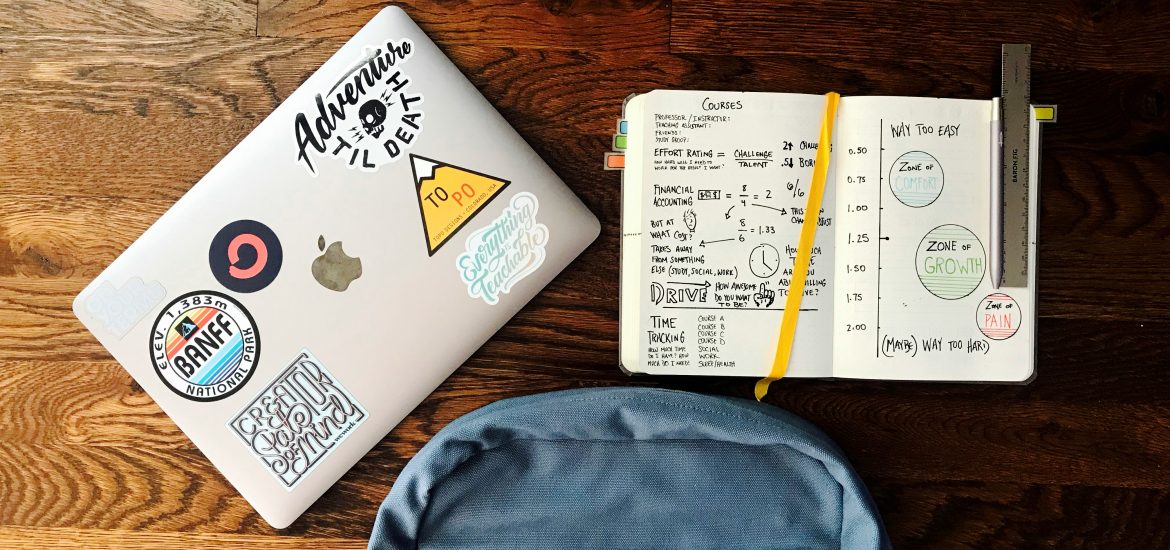 Adventure
'TIL DEATH
TO
PO
TOPO DESIGNS • COLORADO, USA
Everything
is
Teachable
ELEV. 1,383m
BANFF
NATIONAL PARK
CREATOR
State
of Mind
wework
COURSES
PROFESSOR / INSTRUCTOR:
TEACHING ASSISTANT:
FRIENDS:
STUDY GROUP:
EFFORT RATING = CHALLENGE
TALENT
HOW HARD WILL I NEED TO
WORK FOR THE RESULT I WANT?
2↑
.5↓
FINANCIAL
ACCOUNTING
= 8
4
= 2
6/6
BUT AT
WHAT COST?
8
6
= 1.33
THIS
TAKES AWAY
FROM SOMETHING
ELSE (STUDY, SOCIAL, WORK)
HOW MUCH
ARE
YOU
DRIVE
HOW AWESOME
DO YOU WANT
TO BE?
TIME
TRACKING
HOW MUCH TIME
DO I HAVE? HOW
MUCH DO I NEED?
COURSE A
COURSE B
COURSE C
COURSE D
SOCIAL
WORK
SLEEP/HEALTH
WAY TOO EASY
0.50
0.75
1.00
1.25
1.50
1.75
2.00
ZONE OF
COMFORT
ZONE OF
GROWTH
ZONE OF
PAIN
(MAYBE) WAY TOO HARD
BARON FIG